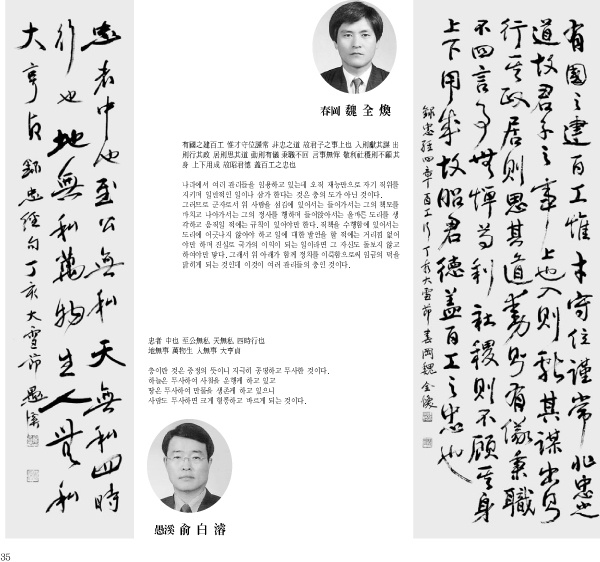 忠者中也至公無私天無私四時
行也地無私萬物生人無私
大亨貞 錄忠經句丁亥大雪節 愚溪
春岡 魏全煥
有國之建百工 惟才守位謹常 非忠之道 故君子之事上也 入則獻其謀 出
則行其政 居則思其道 動則有儀 秉職不回 言事無憚 苟利社稷則不顧其
身 上下用成 故昭君德 蓋百工之忠也
나라에서 여러 관리들을 임용하고 있는데 오직 재능만으로 자기 직위를
지키며 일반적인 일이나 삼가 한다는 것은 충의 도가 아닌 것이다.
그러므로 군자로서 위 사람을 섬김에 있어서는 들어가서는 그의 책모를
바치고 나아가서는 그의 정사를 행하며 들어앉아서는 올바른 도리를 생
각하고 움직일 적에는 규칙이 있어야만 한다. 직책을 수행함에 있어서는
도리에 어긋나지 않아야 하고 일에 대한 발언을 할 적에는 거리낌 없이
아만 하며 진실로 국가의 이익이 되는 일이라면 그 자신도 돌보지 않고
하여야만 맞다. 그래서 위 아래가 함께 정치를 이룩함으로써 임금의 덕을
밝히게 되는 것인데 이것이 여러 관리들의 충인 것이다.
忠者 中也 至公無私 天無私 四時行也
地無事 萬物生 人無事 大亨貞
충이란 것은 중정의 뜻이니 지극히 공평하고 무사한 것이다.
하늘은 무사하여 사철을 운행케 하고 있고
땅은 무사하여 만물을 생존케 하고 있으니
사람도 무사하면 크게 형통하고 바르게 되는 것이다.
愚溪 兪白濬
有國之建百工惟才守位謹常非忠之
道故君子之事上也入則獻其謀出則
行其政居則思其道動則有儀秉職
不回言事無憚苟利社稷則不顧其身
上下用成故昭君德蓋百工之忠也
錄忠經四章百工句丁亥大雪節春岡魏全煥
35